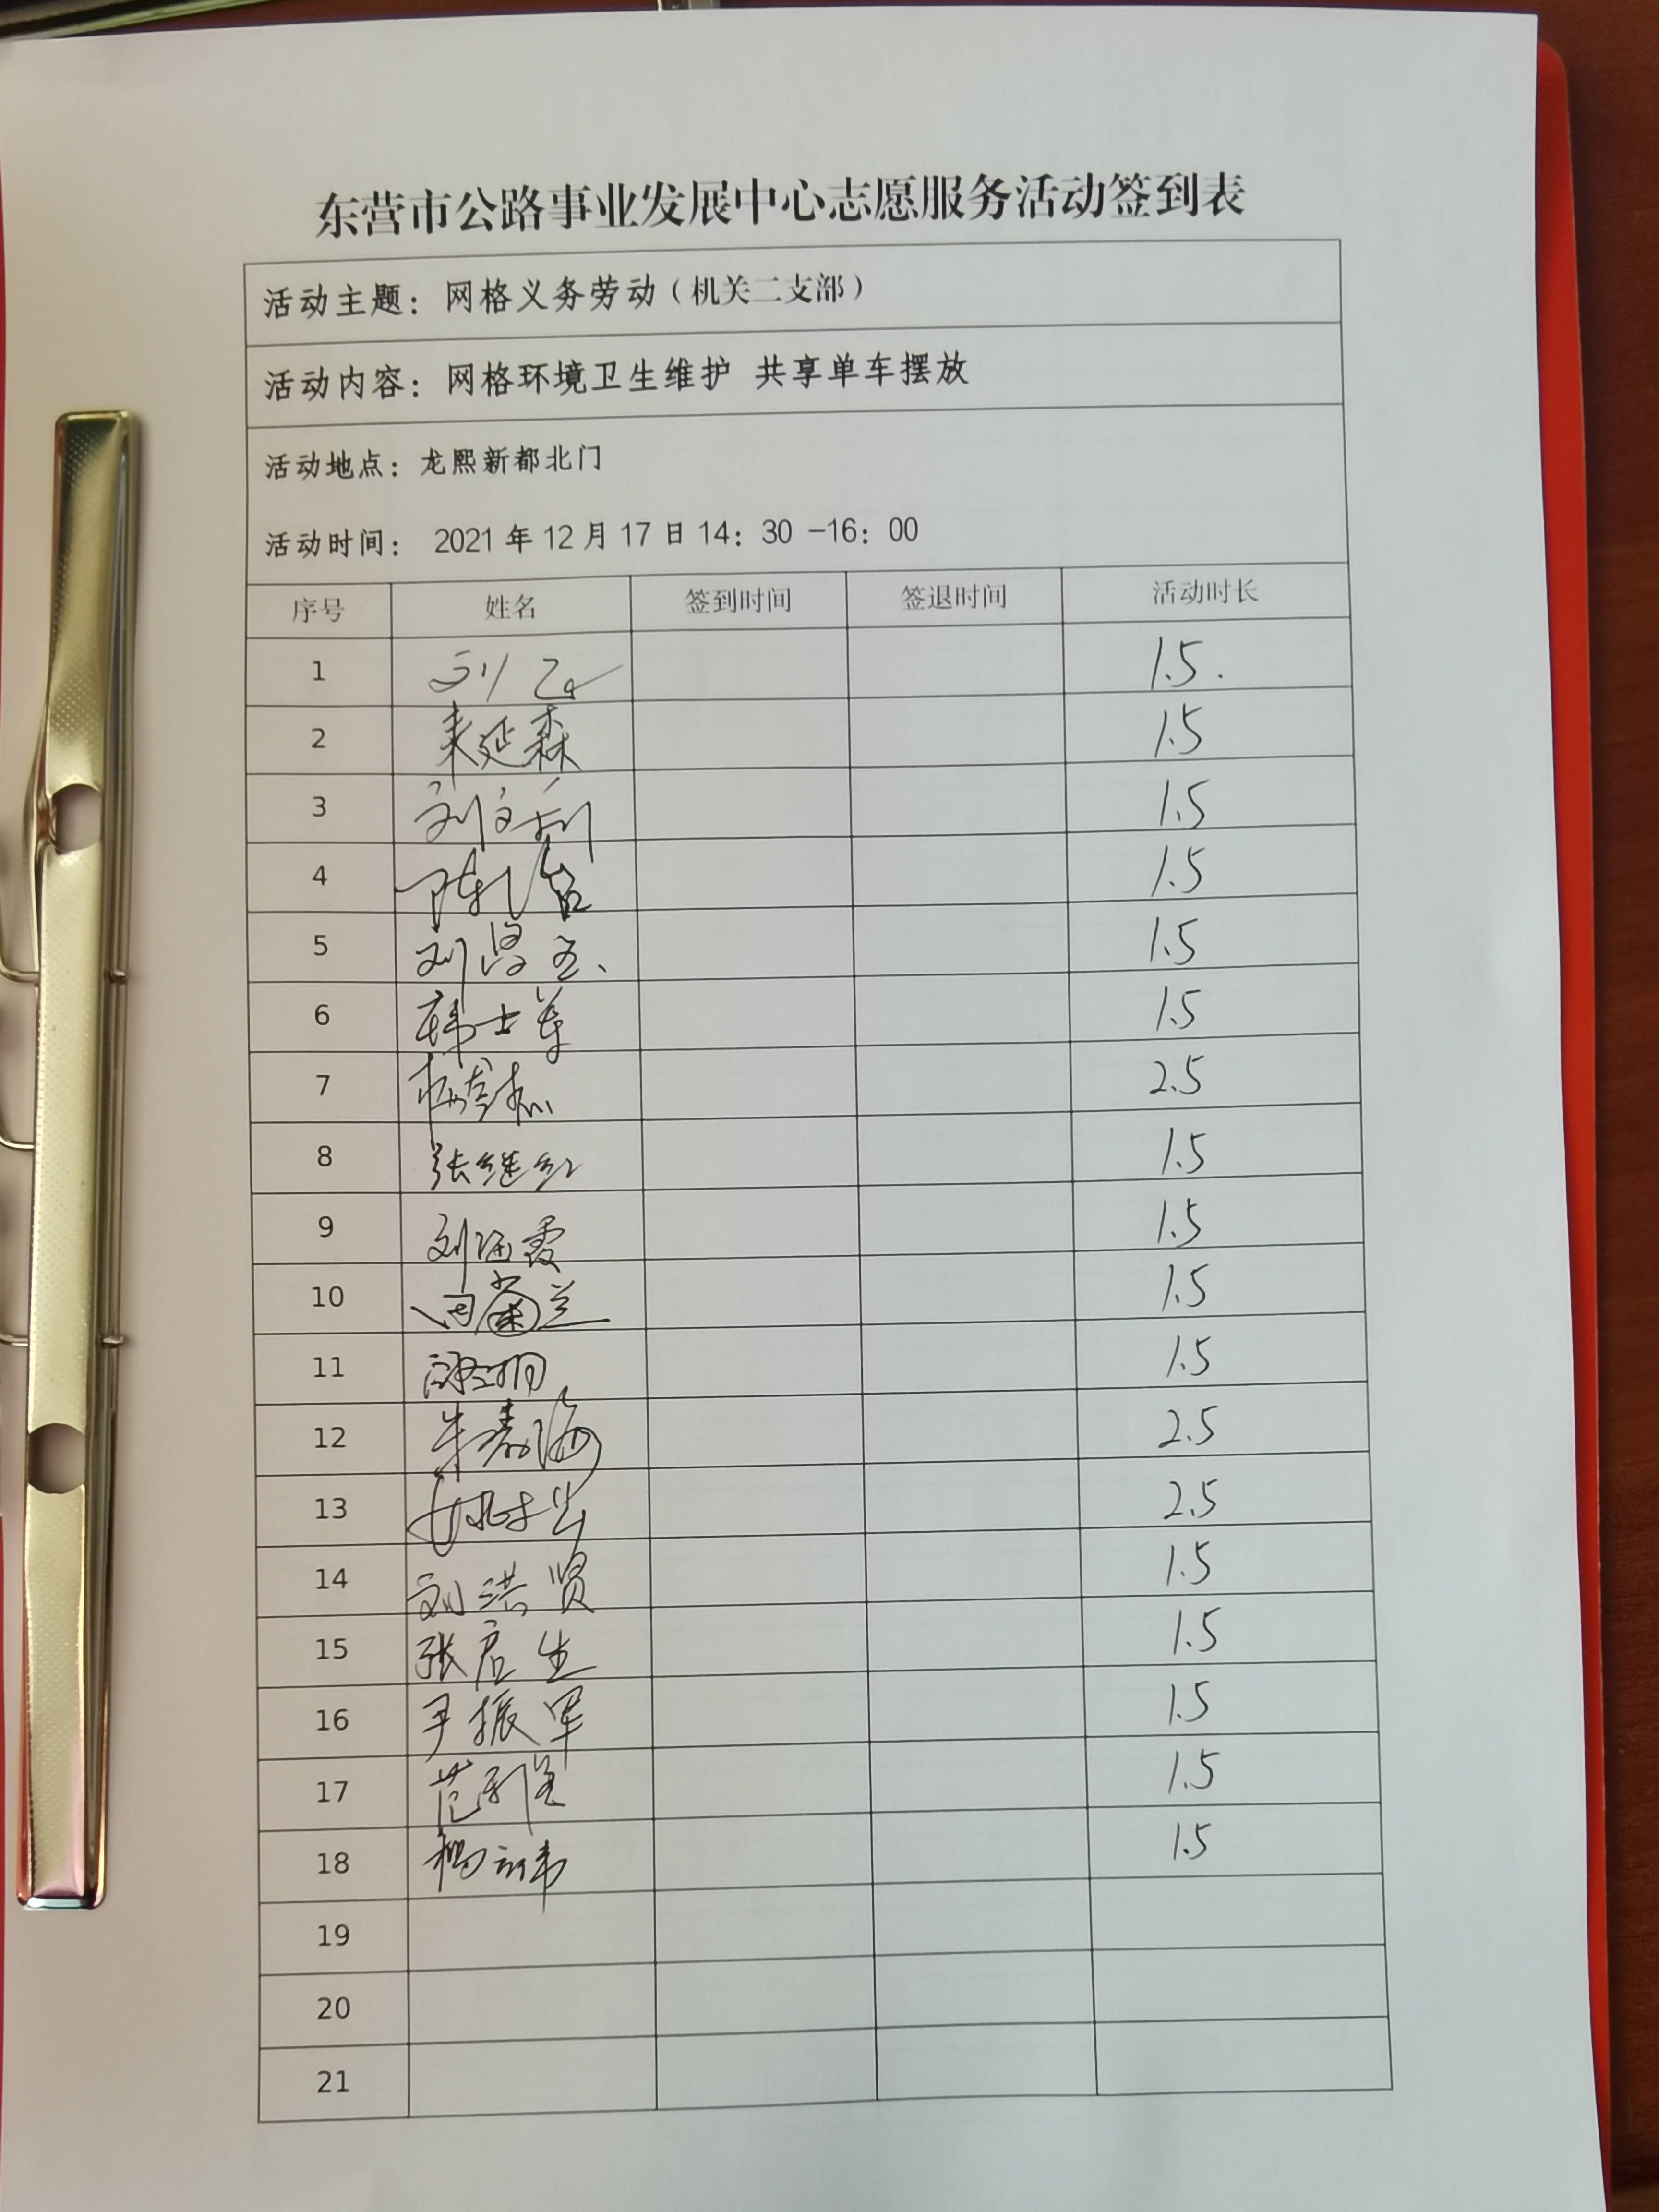 东营市公路事业发展中心志愿服务活动签到表
活动主题：网格义务劳动（机关二支部）
活动内容：网格环境卫生维护 共享单车摆放
活动地点：龙熙新都北门
活动时间： 2021年12月17日14：30 –16：00
序号 姓名 签到时间 签退时间 活动时长
1 刘 1.5.
2 来延森 1.5
3 刘文利 1.5
4 陈 1.5
5 刘 1.5
6 韩士 1.5
7 杨 2.5
8 张继红 1.5
9 刘海霞 1.5
10 田菊兰 1.5
11 1.5
12 朱春海 2.5
13 姚 2.5
14 刘洪贤 1.5
15 张启生 1.5
16 尹振军 1.5
17 范 1.5
18 杨 1.5
19
20
21